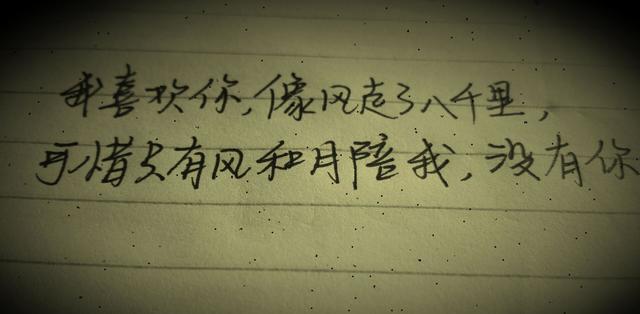 我喜欢你,像风走了八千里,
可惜只有风和月陪我,没有你